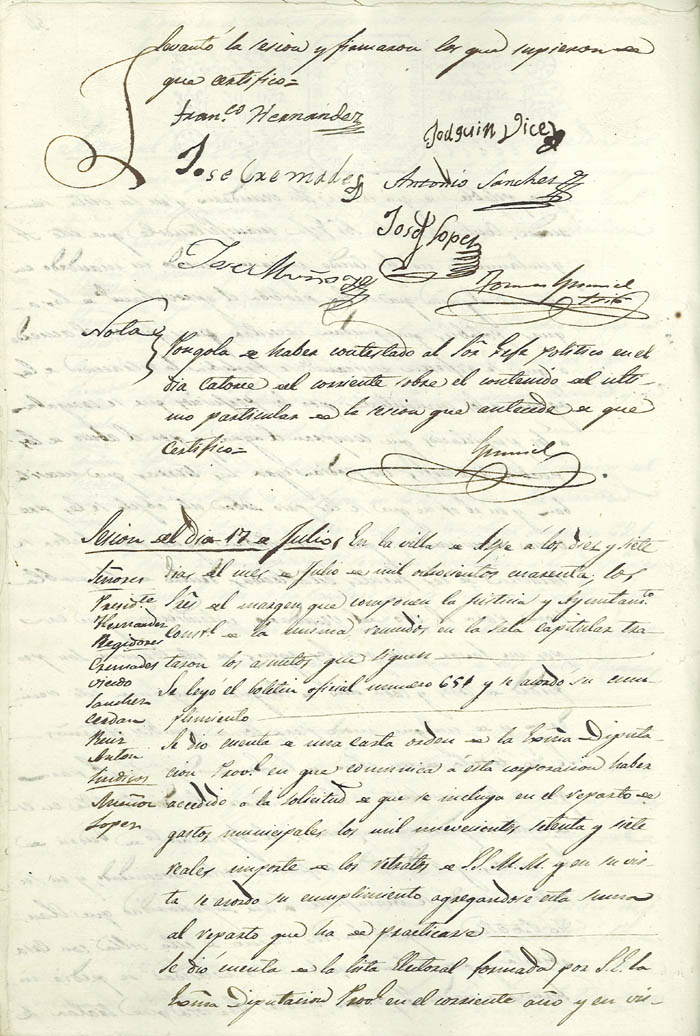 levantó la sesion y firmaron los que supieron de
que certifico=
Fran.co Hernández
Joaquin Vicedo
Jose Cremades
Antonio Sanchez
José Lopez
Jose Muñoz
Nota
Póngola de haber contestado al Sór Gefe politico en el
dia catorce del corriente sobre el contenido del ulti-
mo particular de la sesion que antecede de que
certifico=
Sesion del dia 17 de Julio
En la villa de Aspe á los diez y siete
dias del mes de Julio de mil ochocientos cuarenta: los
Sres. del margen que componen la justicia y Ayuntamto.
Constl. de la misma reunidos en la sala capitular tra-
taron los asuntos que siguen
Señores
Presidte
Hernández
Regidores
Cremades
Vicedo
Sanchez
Cerdan
Ruiz
Anton
Sindicos
Muñoz
Lopez
Se leyó el boletin oficial numero 651 y se acordó su cum-
plimiento
Se dió cuenta de una carta orden de la Exma Diputa-
cion Provl. en que comunica á esta corporacion haber
accedido á la solicitud de que se incluya en el reparto de
gastos municipales los mil nuevecientos setenta y siete
reales importe de los retratos de S.S. M.M. y en su vis-
ta se acordó su cumplimiento agregandose esta suma
al reparto que ha de practicarse
Se dió cuenta de la lista Electoral formada por S.E. la
Exma Diputacion Provl. en el corriente año y en vis-